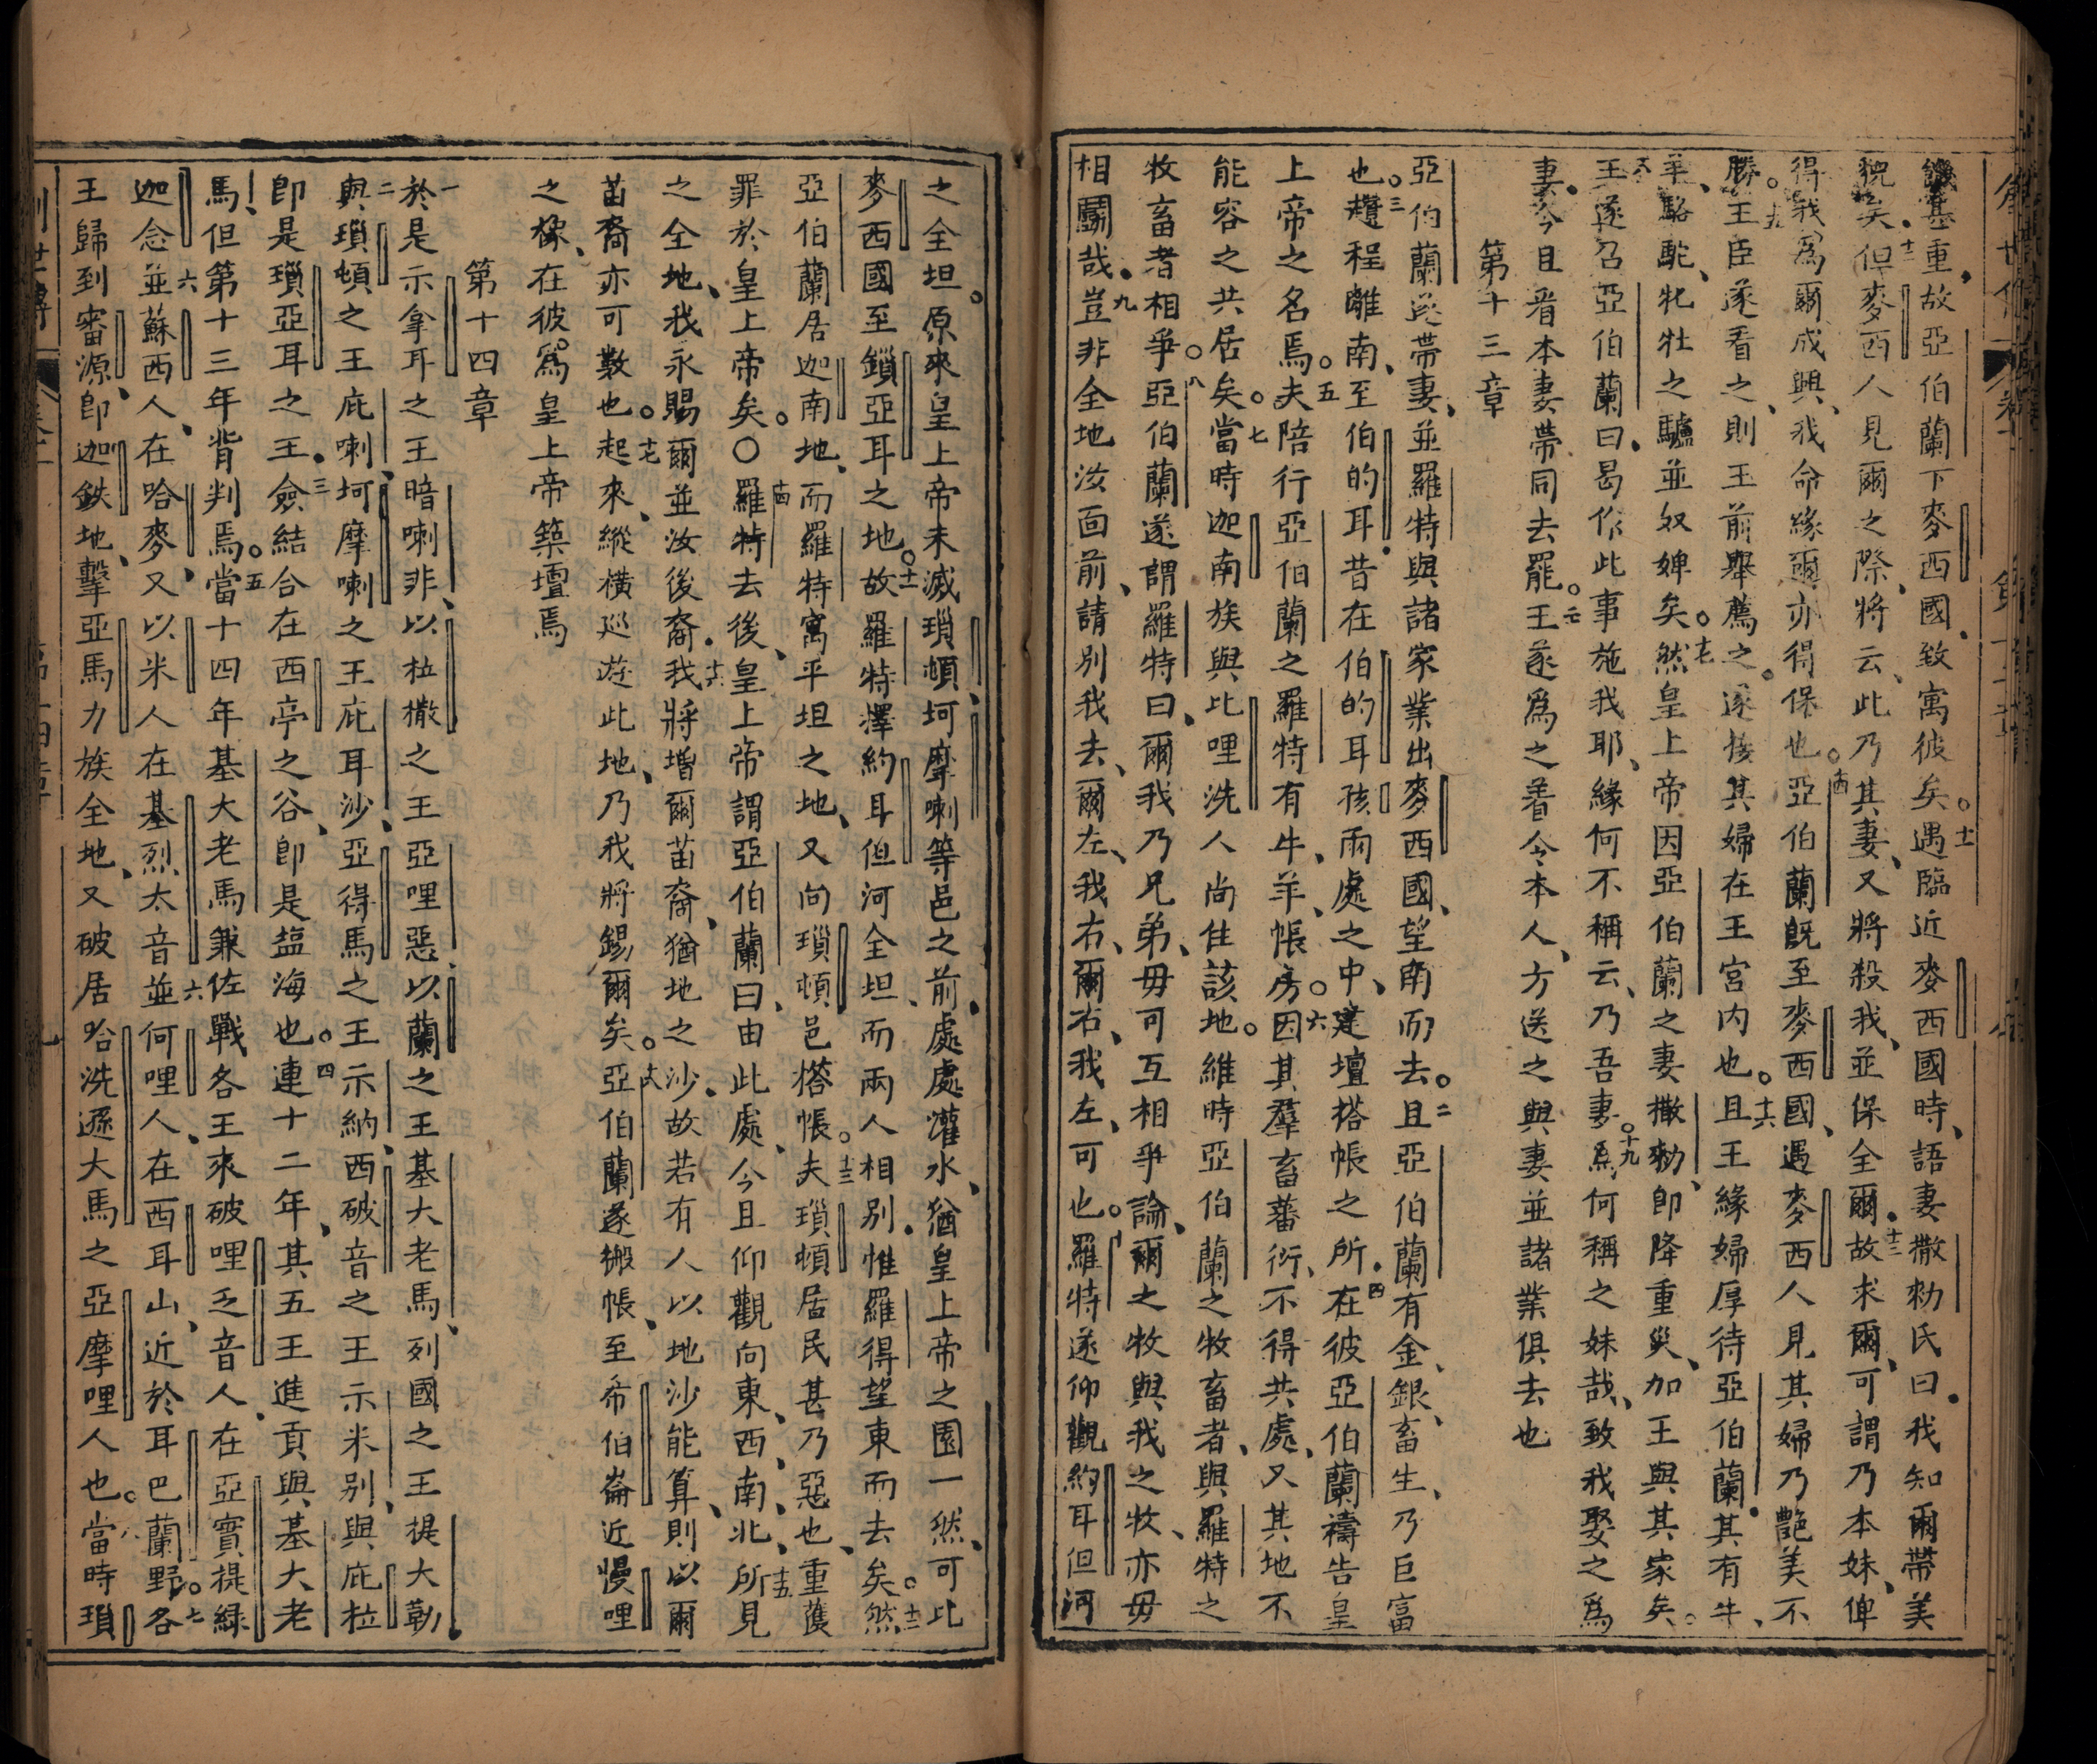 饑甚重故亞伯蘭下麥西國致寓彼矣十一遇臨近麥西國時語妻撒勑氏曰我知爾帶美
貌矣十二但麥西人見爾之際將云此乃其妻又將殺我並保全爾十三故求爾可謂乃本妹俾
得我爲爾成興我命緣爾亦得保也十四亞伯蘭既至麥西國遇麥西人見其婦乃艷美不
勝十五王臣遂看之則王前舉薦之遂接其婦在王宮內也十六且王緣婦厚待亞伯蘭其有牛
羊駱駝牝牡之驢並奴婢矣十七然皇上帝因亞伯蘭之妻撒勑卽降重災加王與其家矣
王遂召亞伯蘭曰曷作此事施我耶緣何不稱云乃吾妻十九爲何稱之妹哉致我娶之爲
妻今且看本妻帶同去罷二十王遂爲之着令本人方送之與妻並諸業俱去也
第十三章
亞伯蘭遂帶妻並羅特與諸家業出麥西國望南而去二且亞伯蘭有金銀畜生乃巨富
也三趲程離南至伯的耳昔在伯的耳孩兩處之中建壇搭帳之所四在彼亞伯蘭禱告皇
上帝之名焉五夫陪行亞伯蘭之羅特有牛羊帳房六因其羣畜蕃衍不得共處又其地不
能容之共居矣七當時迦南族與比哩洗人尚住該地維時亞伯蘭之牧畜者與羅特之
牧畜者相爭八亞伯蘭遂謂羅特曰爾我乃兄弟毋可互相爭論爾之牧與我之牧亦毋
相鬪哉九豈非全地汝面前請別我去爾左我右爾右我左可也十羅特遂仰觀約耳但河
之全坦原來皇上帝未滅瑣頓坷摩喇等邑之前處處灌水猶皇上帝之園一然可比
麥西國至鎖亞耳之地十一故羅特擇約耳但河全坦而兩人相別惟羅得望東而去矣十二然
亞伯蘭居迦南地而羅特寓平坦之地又向瑣頓邑搭帳十三夫瑣頓居民甚乃惡也重獲
罪於皇上帝矣○十四羅特去後皇上帝謂亞伯蘭曰由此處今且仰觀向東西南北十五所見
之全地我永賜爾並汝後裔十六我將增爾苗裔猶地之沙故若有人以地沙能算則以爾
苗裔亦可數也十七起來縱橫巡遊此地乃我將錫爾矣十八亞伯蘭遂搬帳至希伯崙近慢哩
之橡在彼爲皇上帝築壇焉
第十四章
一於是示拿耳之王暗喇非以柆撒之王亞哩惡以蘭之王基大老馬列國之王提大勒
二與瑣頓之王庇喇坷摩喇之王庇耳沙亞得馬之王示納西破音之王示米別與庇柆
卽是瑣亞耳之王三僉結合在西亭之谷卽是塩海也四連十二年其五王進貢與基大老
馬但第十三年背判焉五當十四年基大老馬兼佐戰各王來破哩乏音人在亞實提緑
迦念並六蘇西人在哈麥又以米人在基烈太音六並何哩人在西耳山近於耳巴蘭野七各
王歸到審源卽迦鉄地擊亞馬力族全地又破居哈洗遜大馬之亞摩哩人也八當時瑣